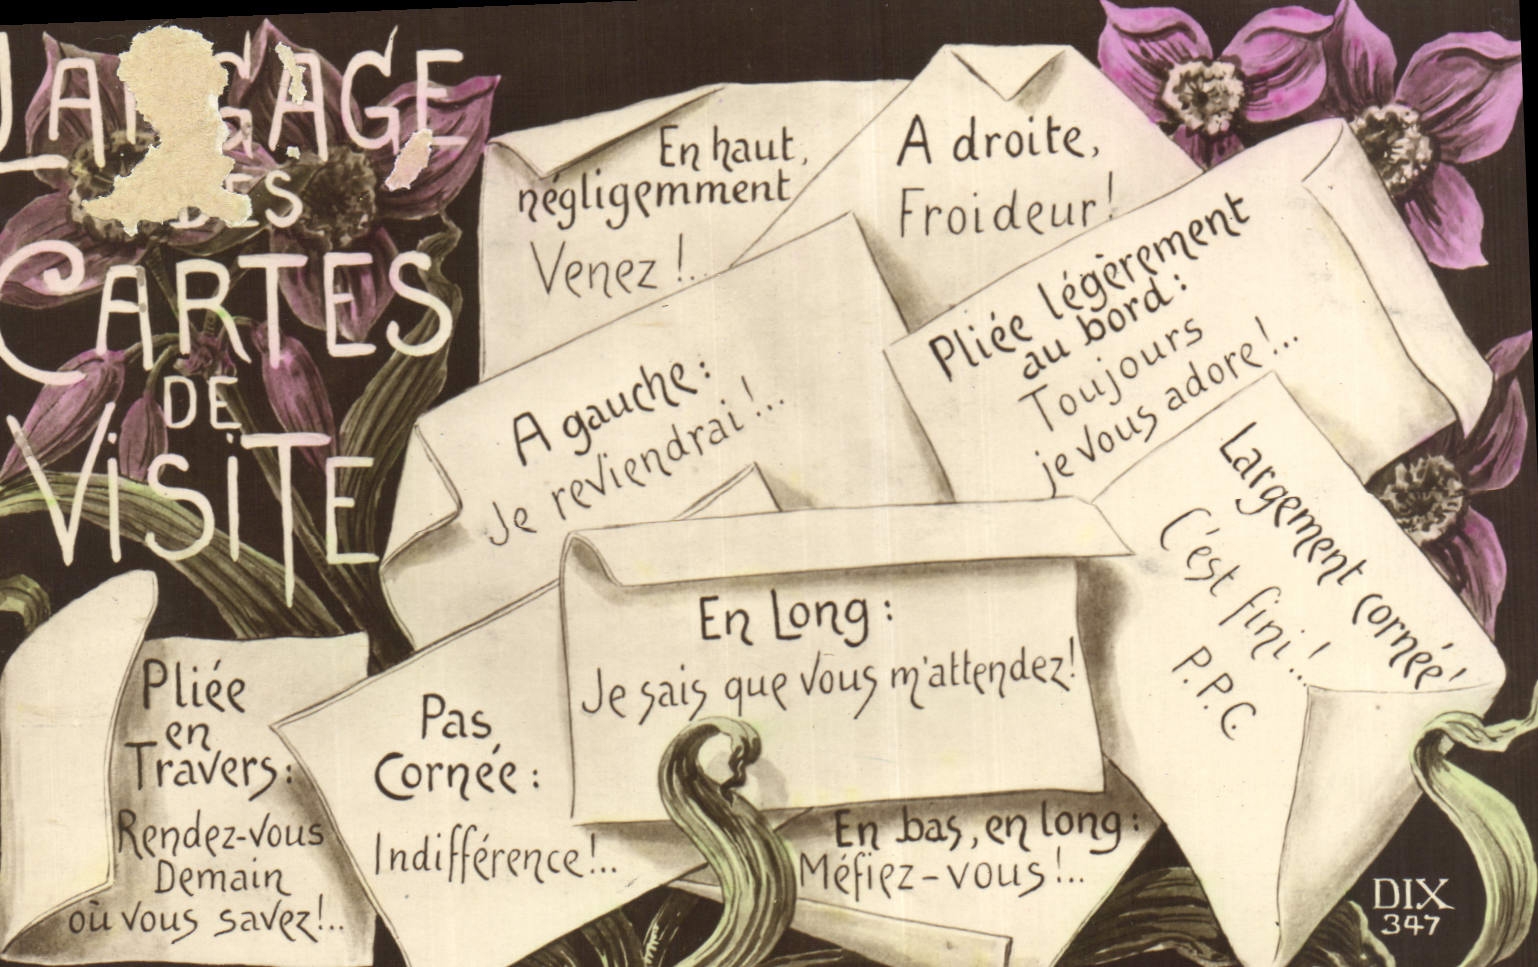 LANGAGE
DES
CARTES
DE
VISITE
En haut,
négligemment
Venez !..
A droite,
Froideur!
A gauche:
Je reviendrai !...
Pliée légèrement
au bord:
Toujours
je vous adore !...
Largement cornée!
C'est fini !...
P.P.C.
En Long :
Je sais que vous m'attendez!
Pliée
en
Travers:
Rendez-vous
Demain
où vous savez!...
Pas
Cornée :
Indifférence!...
En bas, en long:
Méfiez-vous !...
DIX
347